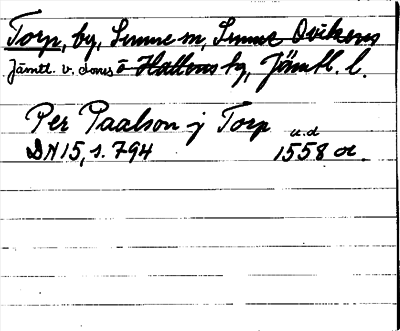 Torp, by, Sunne sn, Sunne Ovikens
Jämtl. v. doms ö Hallens tg, Jämtl. l.
Per Paalson j Torp u.d
DN15, s. 794 1558 or.